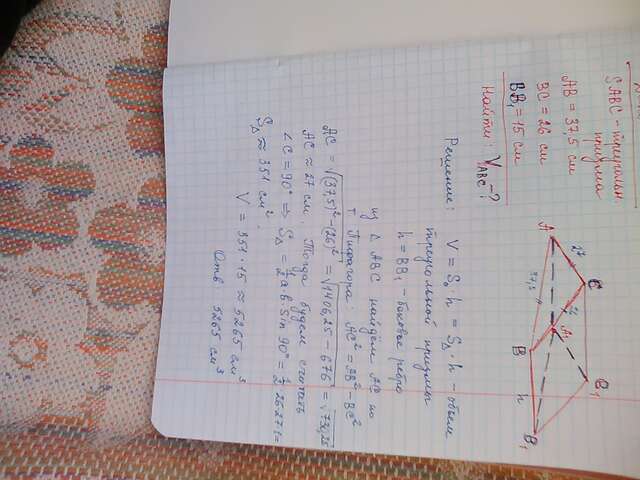 SABC - треугольн.
призма
AB = 37,5 см
BC = 26 см
BB₁ = 15 см
Найти: V_ABC - ?
A
27
C
37,5
26
A₁
C₁
B
h
B₁
Решение: V = S₀ h = S△ · h - объем
треугольной призмы
h = BB₁ - боковое ребро
из △ ABC найдём AC по
т. Пифагора: AC² = AB² - BC²
AC = √(37,5)² - (26)² = √1406,25 - 676 = √730,25
AC ≈ 27 см. Тогда будем считать
∠C = 90° ⇒ S△ = ½ a · b · Sin 90° = ½ 26·27·1 =
S△ ≈ 351 см².
V = 351 · 15 ≈ 5265 см³
Отв 5265 см³